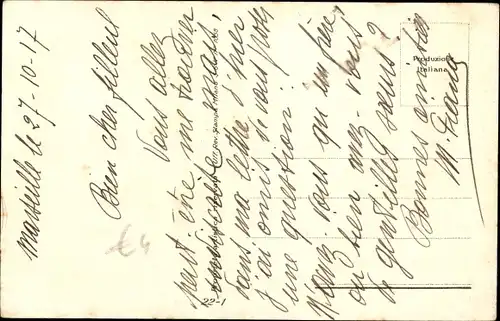 Marseille le 27-10-17
Bien cher filleul
Vous allez
peut être me trouver
indiscrète mais,
dans ma lettre d'hier
j'ai omis de vous poser
une question:
N'avez-vous qu'un frère,
ou bien avez-vous
de gentilles sœurs?
Bonnes amitiés
M.
Produzione
Italiana
22-1
€4